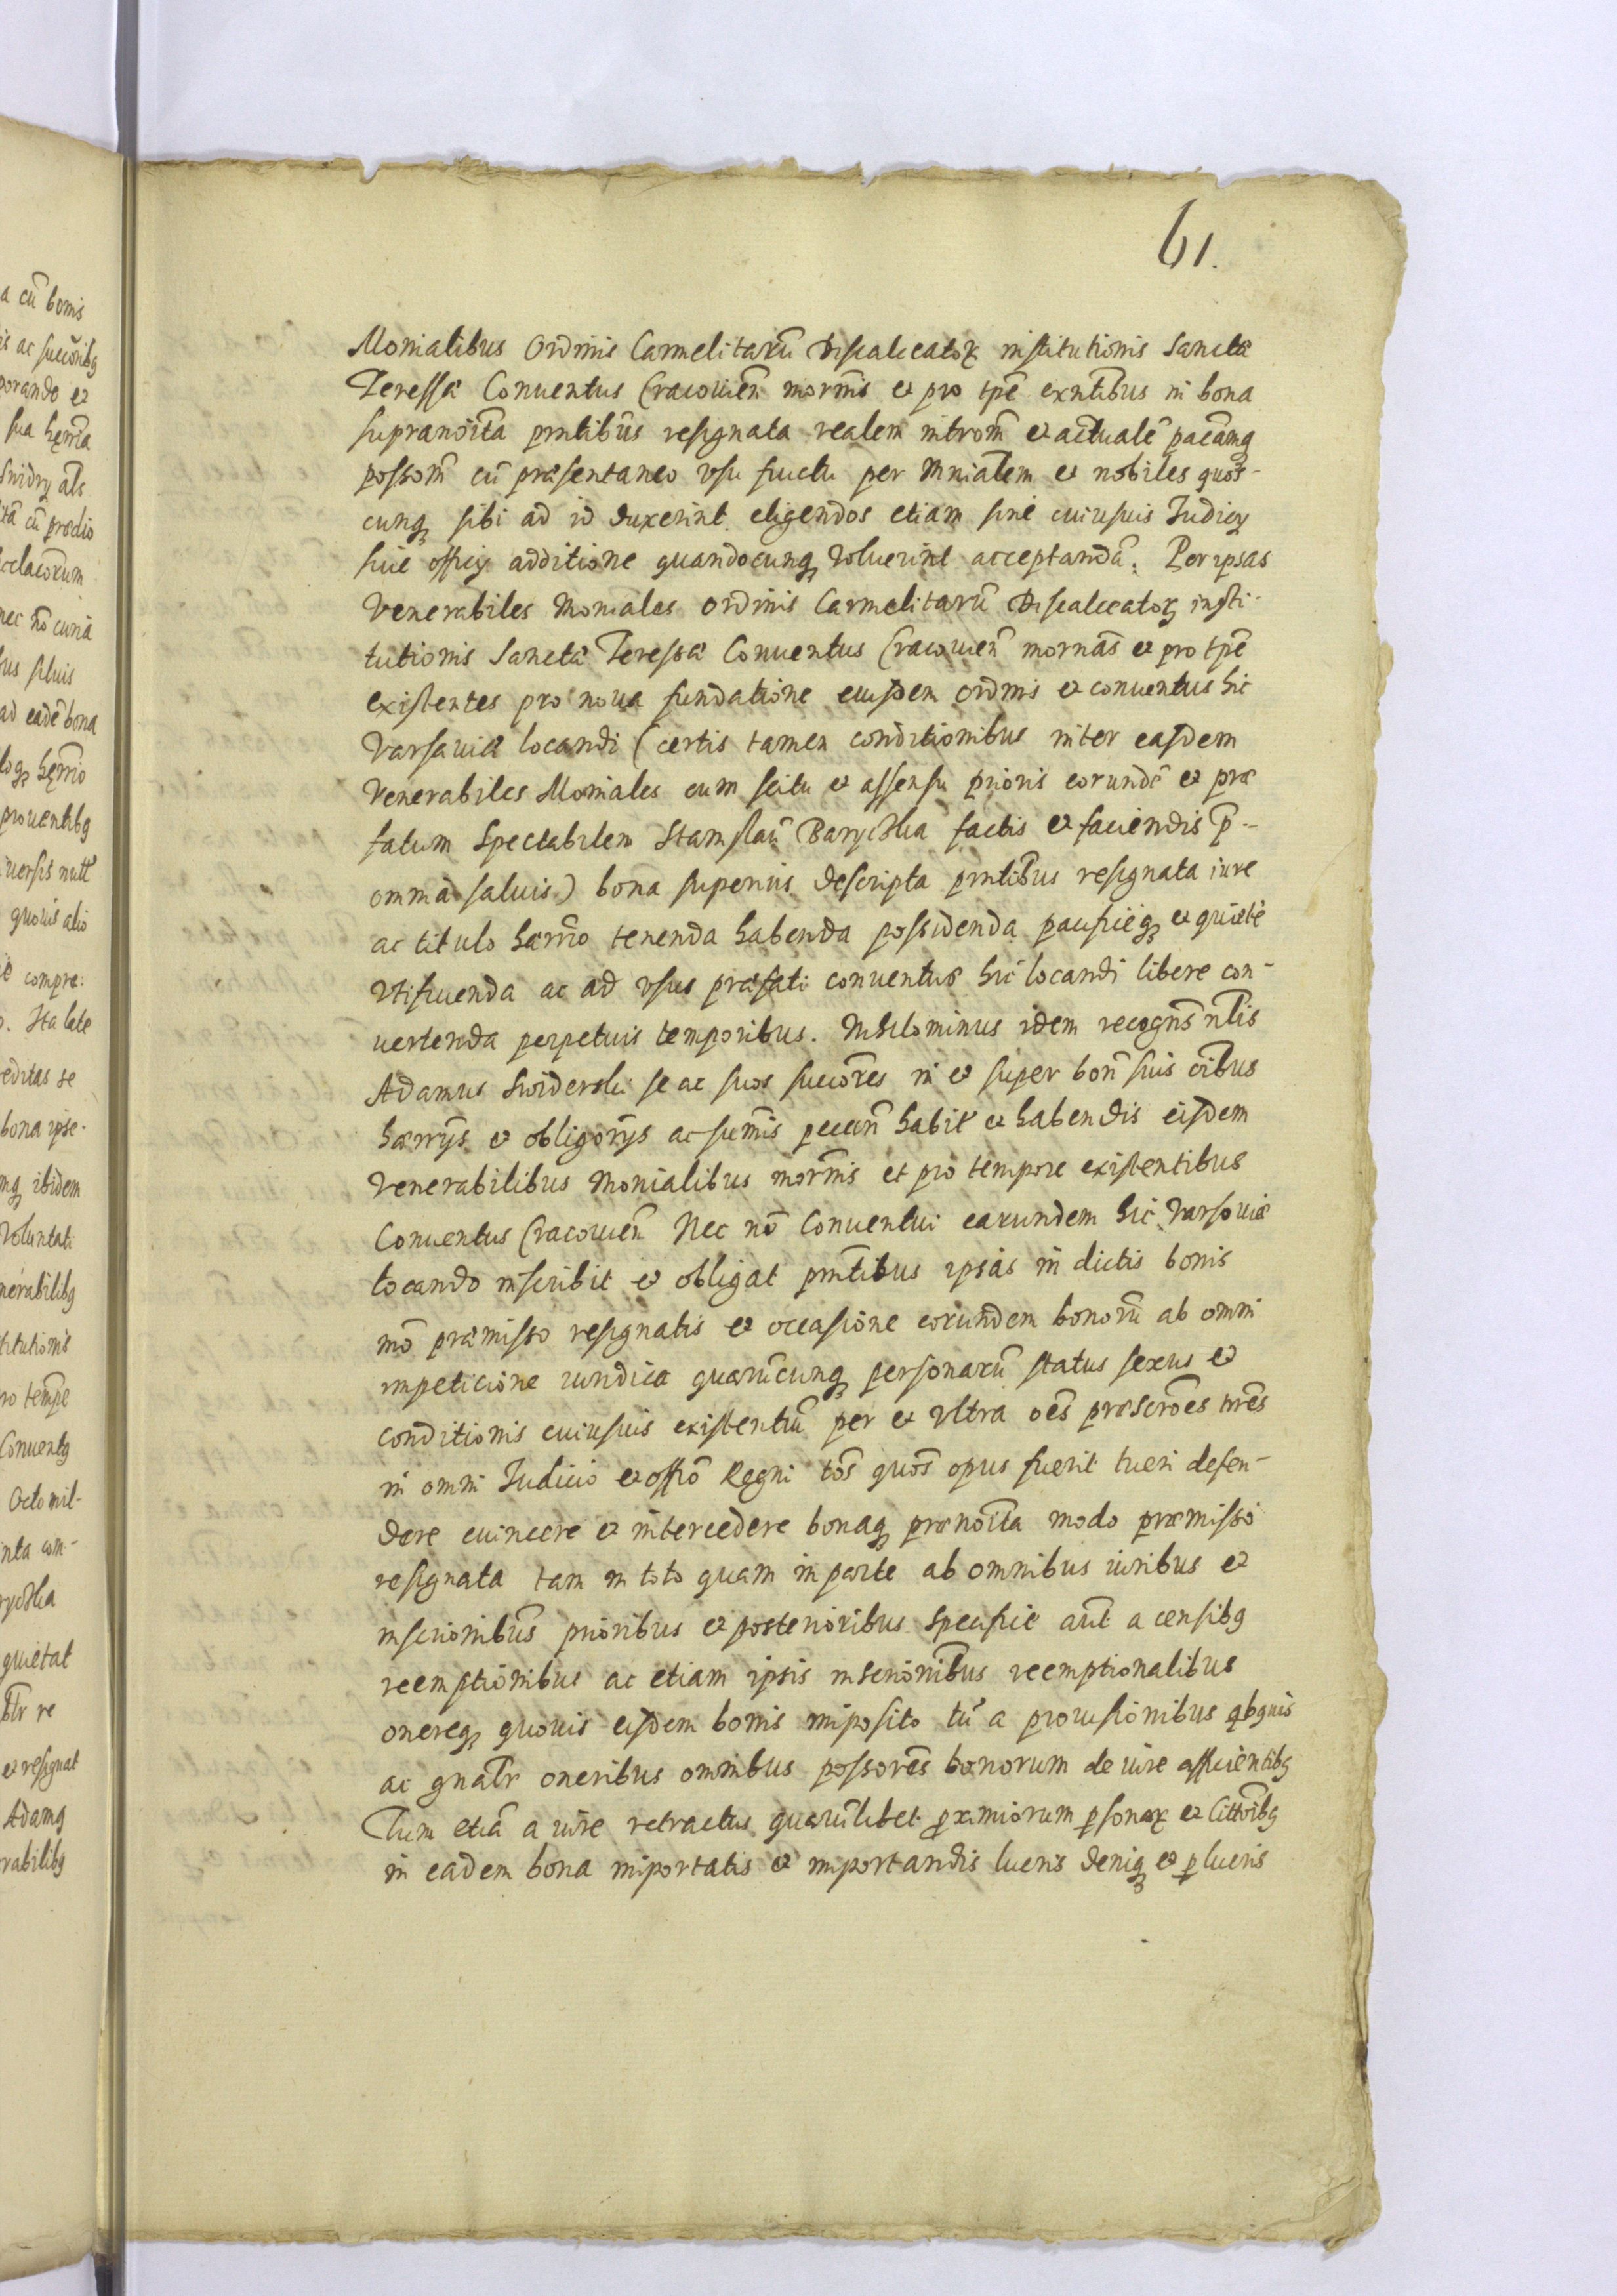 61.
Monialibus Ordinis Carmelitarũ Discalceatoꝝ institutionis Sanctæ
Teressæ Conuentus Cracouień mornis et pro tpẽ exñtibus in bona
supranoĩta pñtibus resignata realem introm̃ et actualẽ pacamq
possom̃ cũ præsentaneo vsu fructu per Mnialem et nobiles quos-
cunqꝫ sibi ad id duxerint eligendos etiam sine cuiusuis Iudicij
siue officij additione quandocunqꝫ voluerint acceptandã. Per ipsas
Venerabiles Moniales Ordinis Carmelitarũ Discalceatoꝝ insti-
tutionis Sanctæ Teressæ Conuentus Cracouień mornãs et pro tpẽ
existentes pro noua fundatione eiusdem ordinis et conuentus hic
Varsauiæ locandi (certis tamen conditionibus inter easdem
Venerabiles Moniales cum scitu et assensu prioris eorundẽ et præ
fatum Spectabilem Stanislaũ Baryczka factis et faciendis p̃-
omnia saluis) bona superius descripta pñtibus resignata iure
ac titulo hærrio tenenda habenda possidenda pacificeqꝫ et quiete
vtifruenda ac ad vsus præfati conuentus hic locandi libere con-
uertenda perpetuis temporibus. Nihilominus idem recogñs ñlis
Adamus Swiderski se ac suos succõres in et super boñ suis oĩbus
hærrijs et obligorijs ac sumĩs pecuñ habit et habendis eisdem
Venerabilibus Monialibus morñis et pro tempore existentibus
Conuentus Cracouień Nec nõ Conuentui earundem hic Varsouiæ
locando inscribit et obligat pñtibus ipsas in dictis bonis
mõ præmisso resignatis et occasione eorundem bonorũ ab omni
impeticione iuridica quarũcunqꝫ personarũ status sexus et
conditionis cuiusuis existentiũ per et vltra oẽs præscrões trrẽs
in omni Iudicio et offiõ Regni tõs quõs opus fuerit tueri defen-
dere euincere et intercedere bonaqꝫ prænoĩta modo præmisso
resignata tam in toto quam in parte ab omnibus iuribus et
inscrionibus prioribus et posterioribus Specifice aũt a censibꝫ
reemptionibus ac etiam ipsis inscrionibus reemptionalibus
onereqꝫ quouis eisdem bonis imposito tũ a prouisionibus qbꝫuis
ac gñalr oneribus omnibus possorẽs bonorum de iure afficientibꝫ
Tum etiã a iure retractus quarũlibet proximiorum psonaꝝ et littõibꝫ
in eadem bona importatis et importandis lucris deniqꝫ et plucris